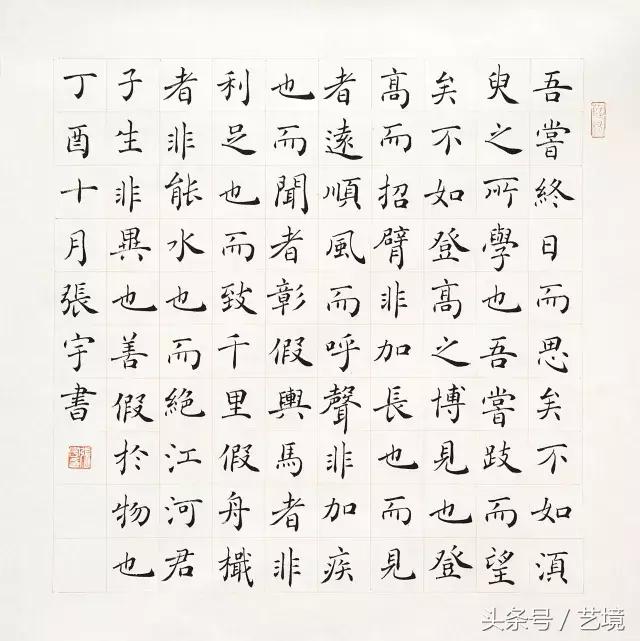 吾嘗終日而思矣不如湏
臾之所學也吾嘗跂而望
矣不如登髙之博見也登
髙而招臂非加長也而見
者遠順風而呼聲非加疾
也而聞者彰假輿馬者非
利足也而致千里假舟檝
者非能水也而絕江河君
子生非異也善假於物也
丁酉十月張宇書
头条号 / 艺境